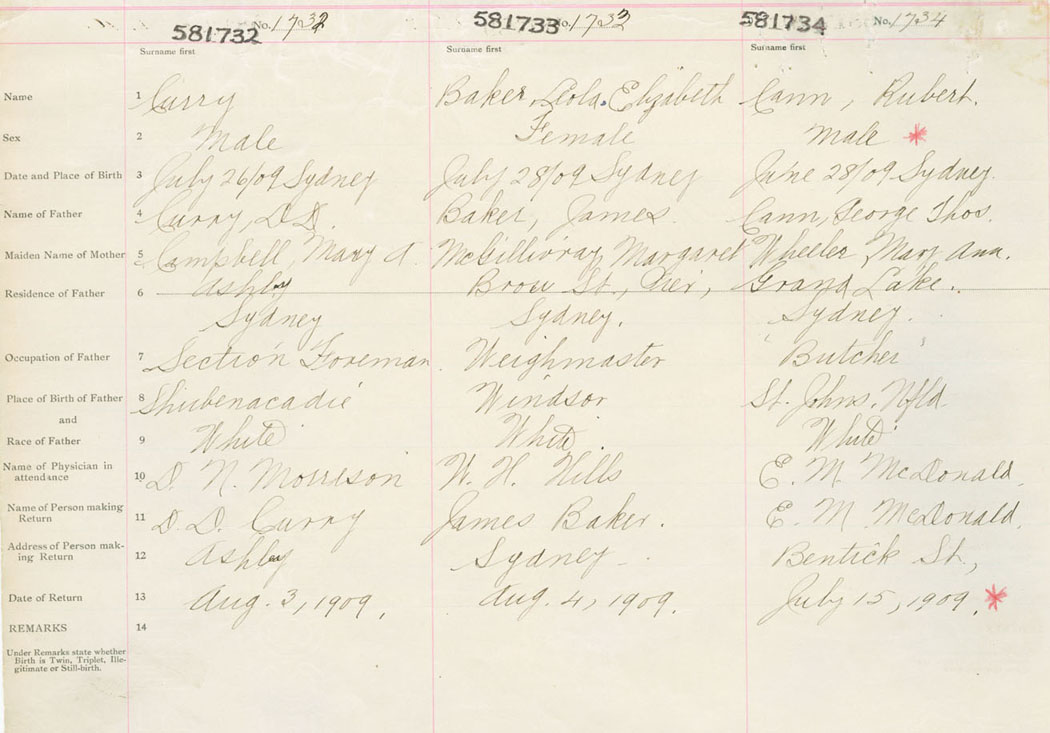 581732 No. 1732 581733 No. 1733 581734 No. 1734
Surname first Surname first Surname first
Name 1 Curry Baker, Leola Elizabeth Cann, Rubert.
Sex 2 Male Female Male *
Date and Place of Birth 3 July 26/09 Sydney July 28/09 Sydney June 28/09 Sydney.
Name of Father 4 Curry, D.D. Baker, James. Cann, George Thos.
Maiden Name of Mother 5 Campbell, Mary A. McGillivray, Margaret Wheeler, Mary Ann.
Residence of Father 6 Ashby Brow St., Pier, Grand Lake.
Sydney Sydney. Sydney.
Occupation of Father 7 Section Foreman. Weighmaster "Butcher"
Place of Birth of Father 8 Shubenacadie Windsor St. Johns, Nfld
and
Race of Father 9 White White. White
Name of Physician in
attendance 10 D. N. Morrison W. H. Hills E. M. McDonald.
Name of Person making
Return 11 D. D. Curry James Baker. E. M McDonald.
Address of Person mak-
ing Return 12 Ashby Sydney Bentick St.,
Date of Return 13 Aug. 3, 1909. Aug. 4, 1909. July 15, 1909. *
REMARKS 14
Under Remarks state whether
Birth is Twin, Triplet, Ille-
gitimate or Still-birth.